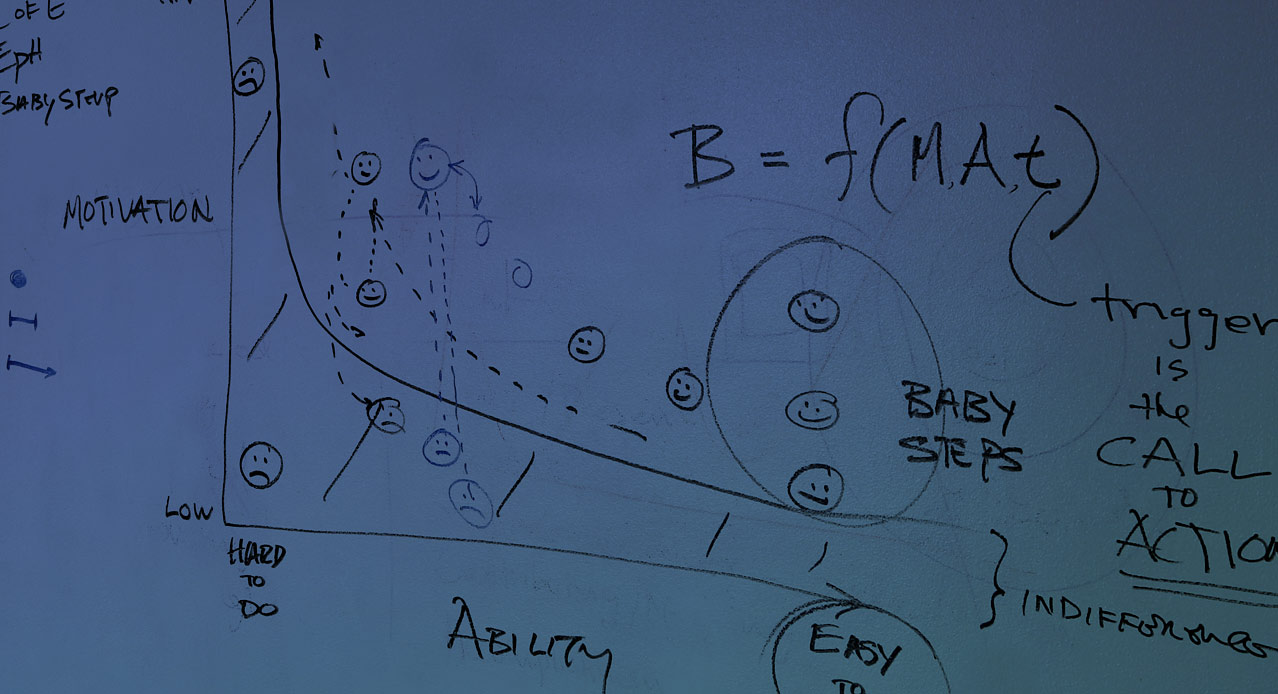 OF E
EpH
BABY STEVP
MOTIVATION
LOW
HARD
TO
DO
ABILITY
B = f(M,A,t)
trigger
IS
the
CALL
TO
ACTION
BABY
STEPS
EASY
TO